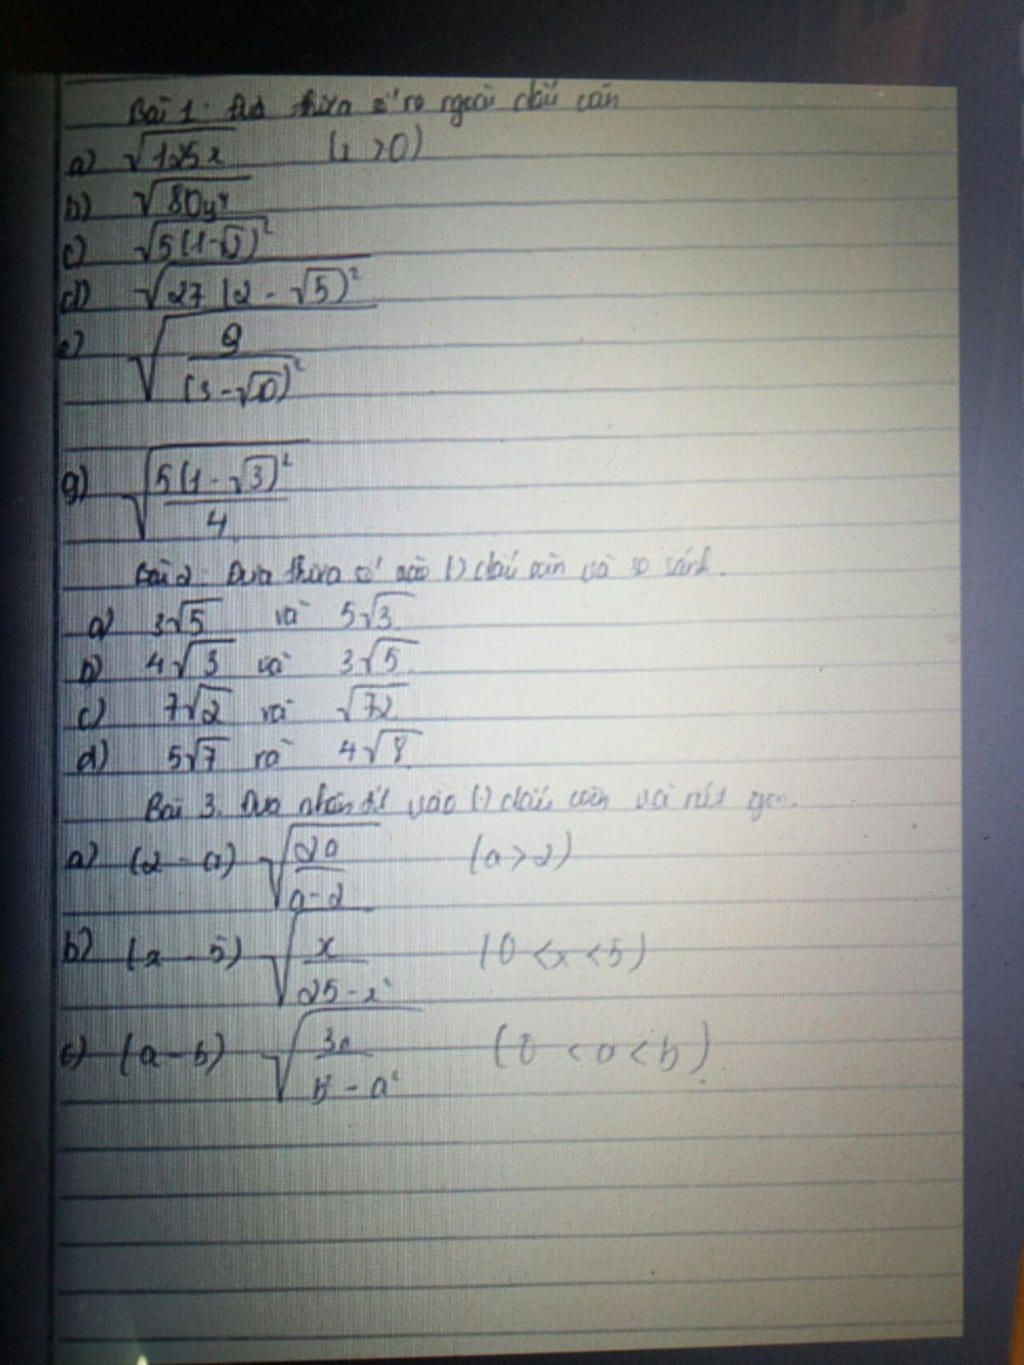 Bài 1: Đưa thừa số ra ngoài dấu căn
a) √125x (x >0)
b) √80y²
c) √5(1-√2)²
d) √27(2 - √5)²
e) √9/(3-√10)²
g) √5(1-√3)²/4
Bài 2: Đưa thừa số vào (.) dấu căn và so sánh.
a) 3√5 và 5√3
b) 4√3 và 3√5
c) 7√2 và √72
d) 5√7 và 4√8
Bài 3. Đưa nhân tử vào (.) dấu căn và rút gọn.
a) (2 - a) √2a/a-2 (a > 2)
b) (x - 5) √x/25-x² (0 < x < 5)
c) (a - b) √3a/b²-a² (0 < a < b)